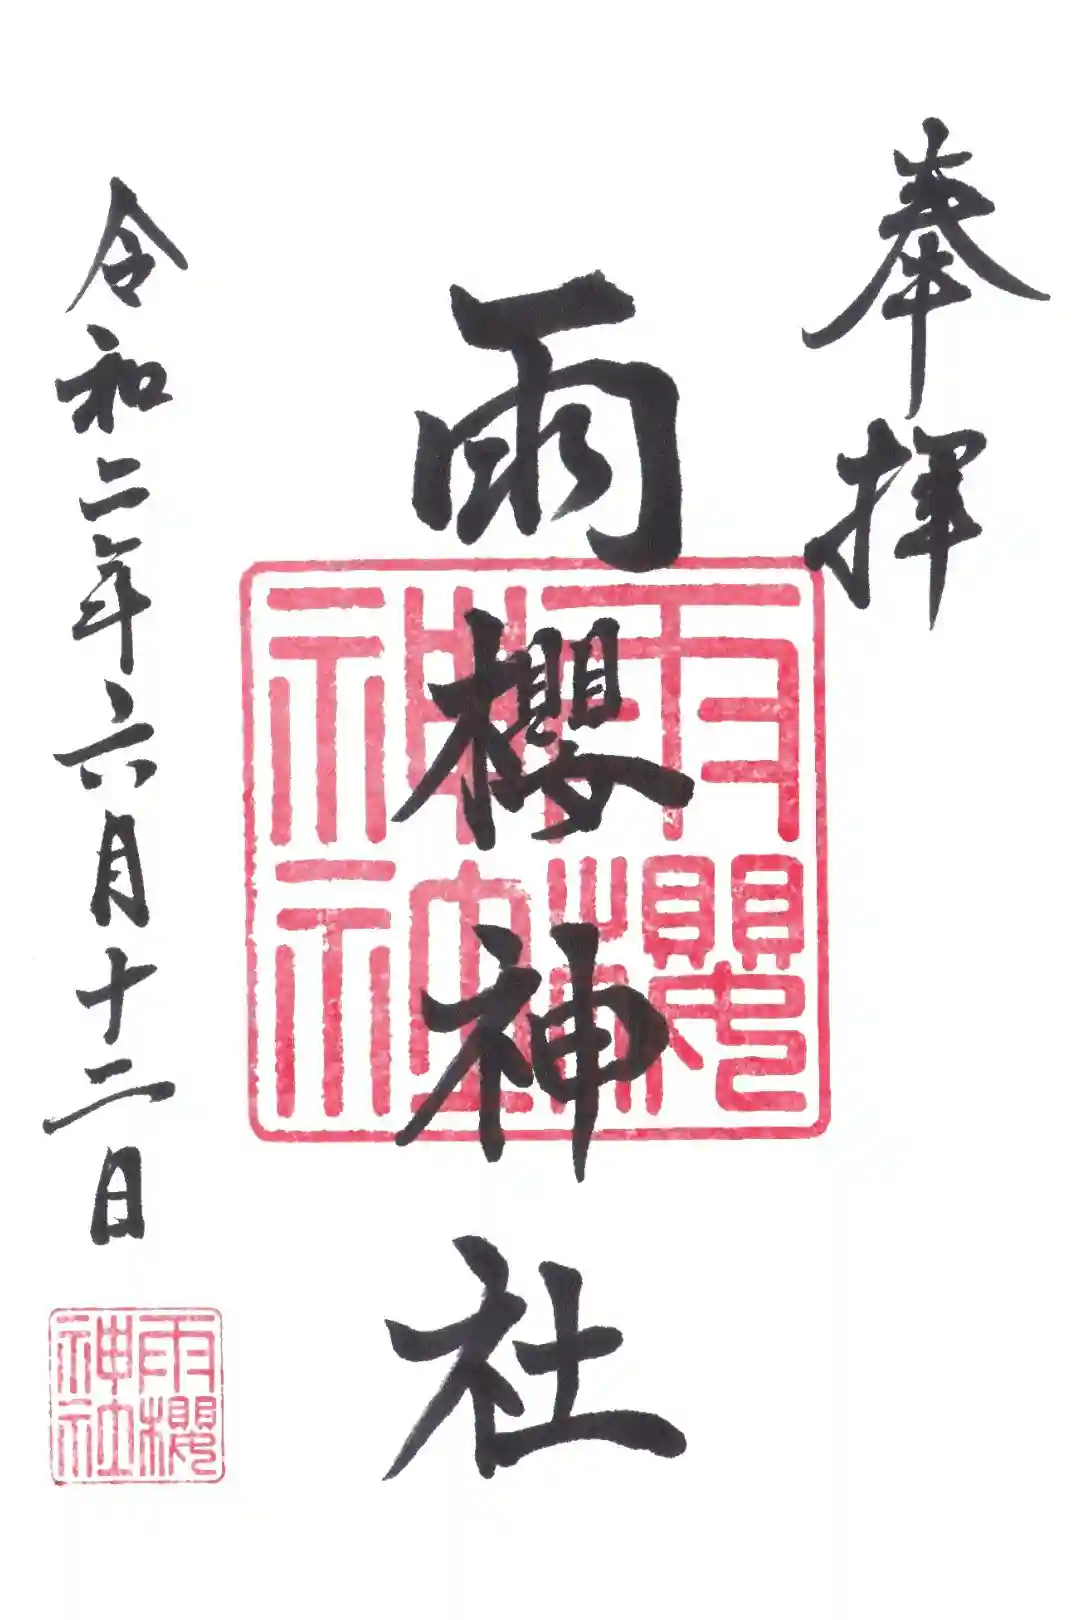 奉拝
雨櫻神社
雨櫻
神社
令和二年六月十二日
雨櫻
神社